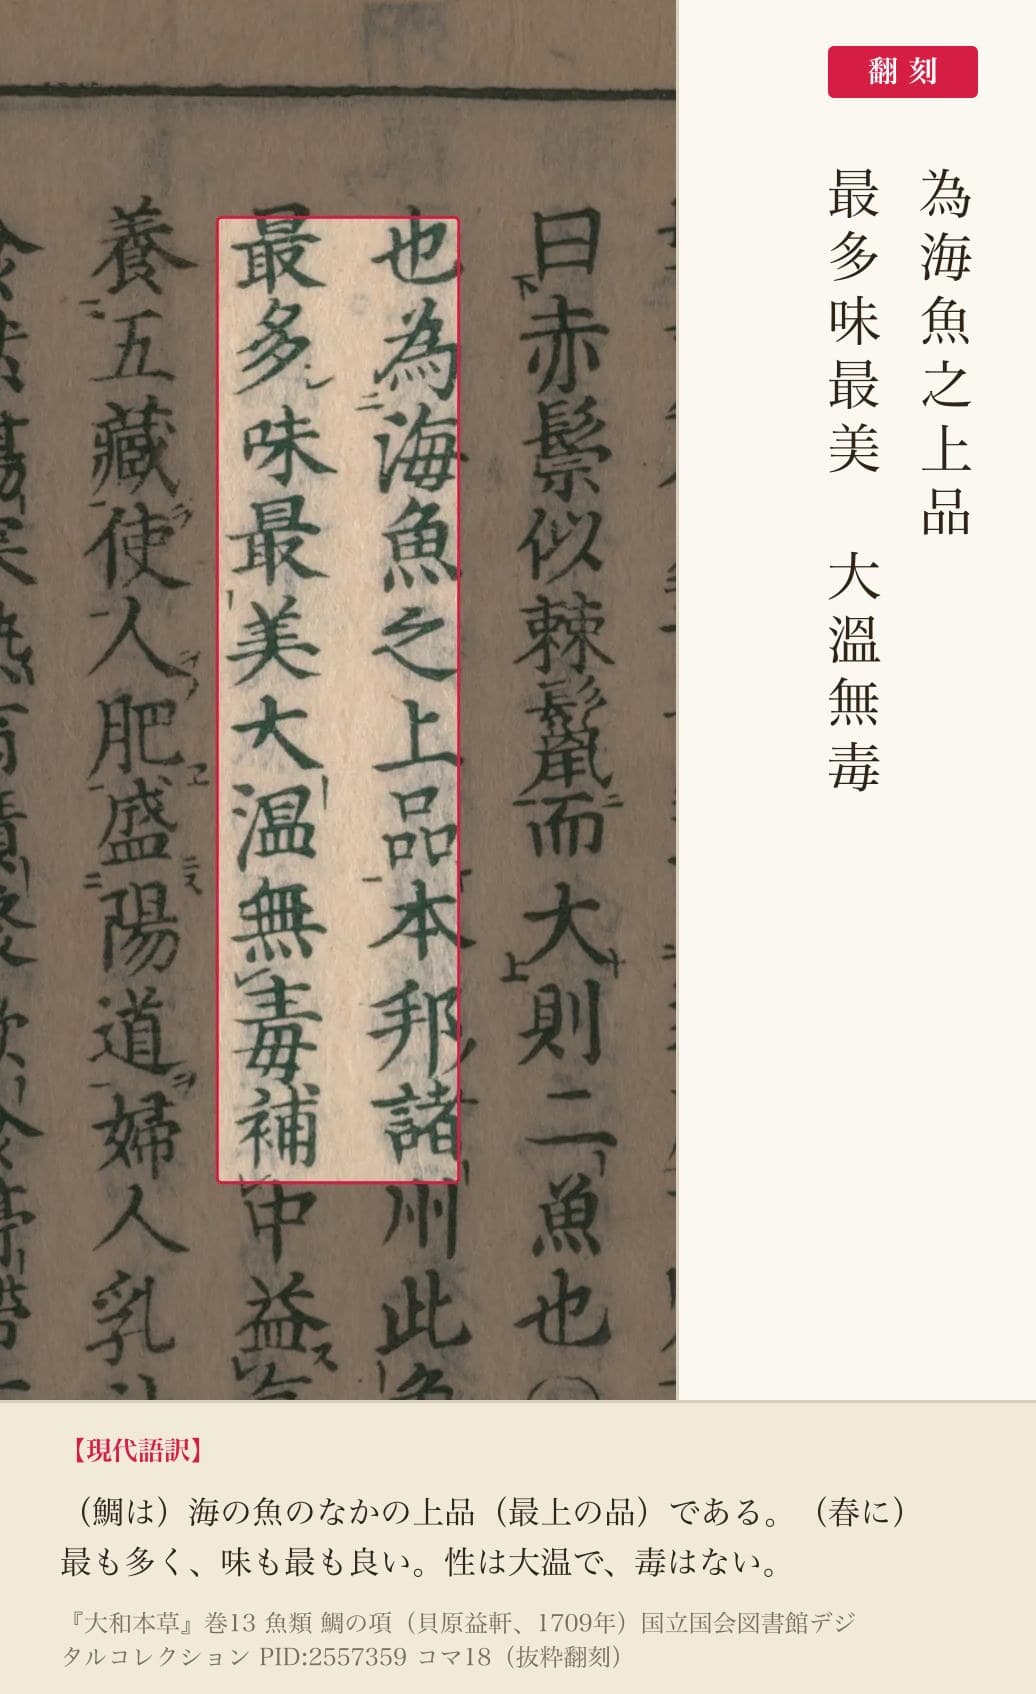 曰赤鬃似棘鬣而大則二魚也
也為海魚之上品本邦諸州此魚
最多味最美大温無毒補中益
養五藏使人肥盛陽道婦人乳
翻刻
為海魚之上品
最多味最美 大溫無毒
【現代語訳】
（鯛は）海の魚のなかの上品（最上の品）である。（春に）
最も多く、味も最も良い。性は大温で、毒はない。
『大和本草』巻13 魚類 鯛の項（貝原益軒、1709年）国立国会図書館デジ
タルコレクション PID:2557359 コマ18（抜粋翻刻）